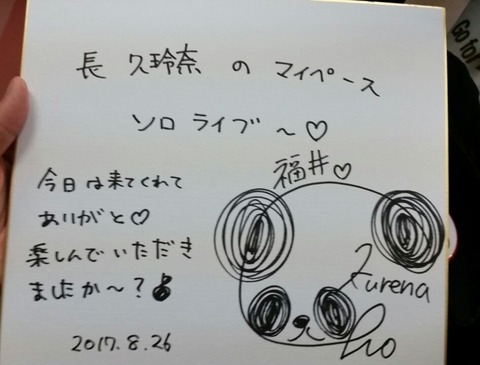 長 久玲奈 の マイペース
ソロ ライブ 〜 ♡
福井♡
今日は来てくれて
ありがと♡
楽しんでいただき
ましたか〜?♪
2017.8.26
Kurena
Cho
Go for